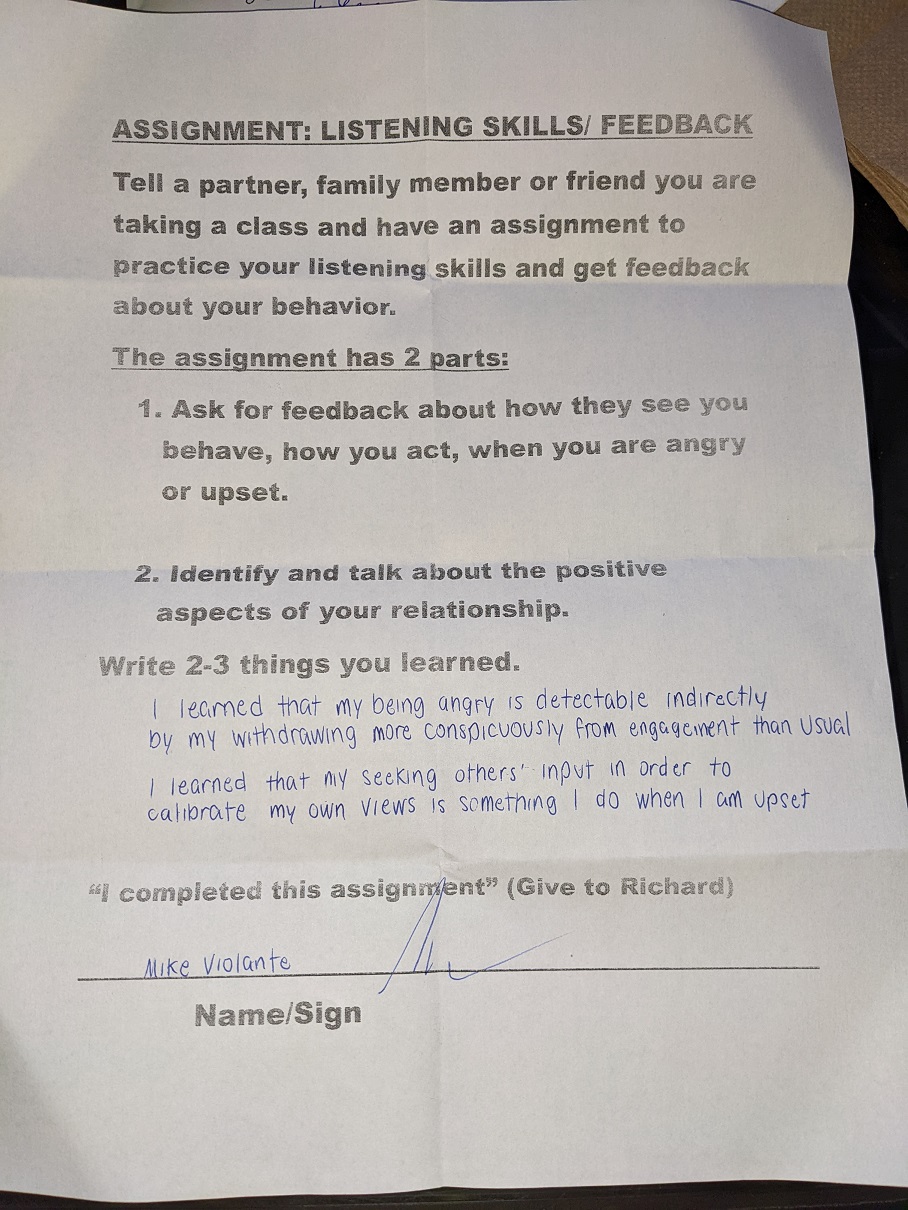 ASSIGNMENT: LISTENING SKILLS/ FEEDBACK
Tell a partner, family member or friend you are
taking a class and have an assignment to
practice your listening skills and get feedback
about your behavior.
The assignment has 2 parts:
1. Ask for feedback about how they see you
behave, how you act, when you are angry
or upset.
2. Identify and talk about the positive
aspects of your relationship.
Write 2-3 things you learned.
I learned that my being angry is detectable indirectly
by my withdrawing more conspicuously from engagement than usual
I learned that my seeking others' input in order to
calibrate my own views is something I do when I am upset
“I completed this assignment” (Give to Richard)
Mike Violante
Name/Sign